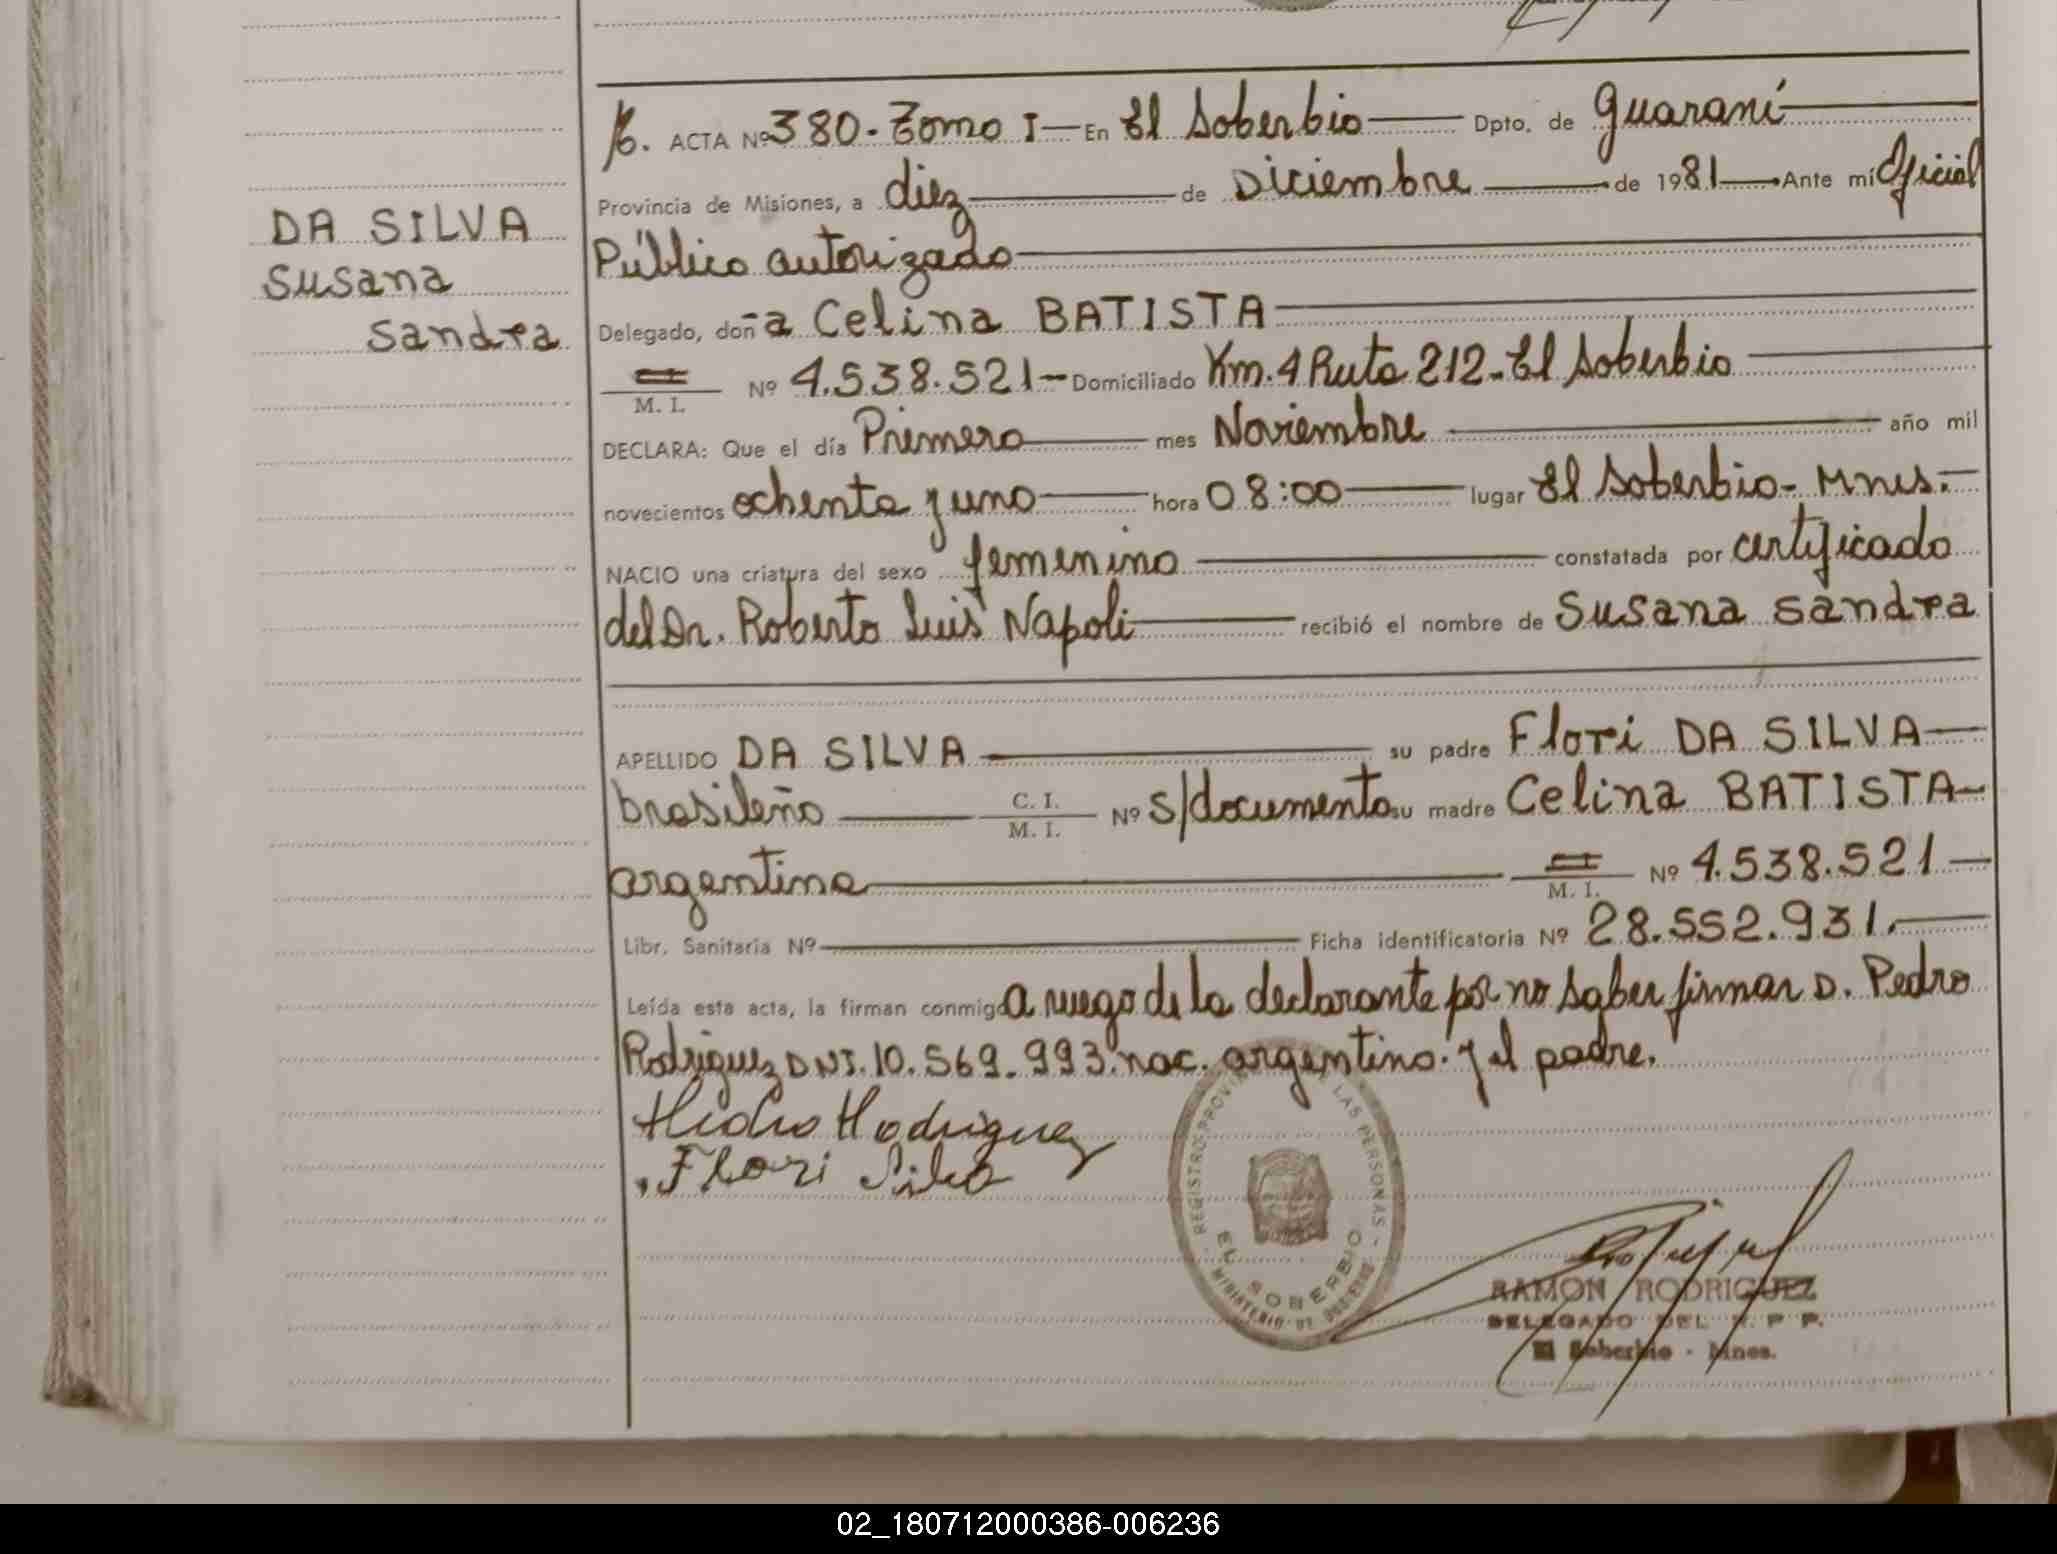 ACTA Nº 380. Tomo I En El Soberbio Dpto. de Guaraní
Provincia de Misiones, a diez de Diciembre de 1981 Ante mí Oficial
Público autorizado
DA SILVA
Susana
Sandra
Delegado, doña Celina BATISTA
M. I. Nº 4.538.521 Domiciliado Km. 4 Ruta 212 - El Soberbio
DECLARA: Que el día Primero mes Noviembre año mil
novecientos ochenta y uno hora 08:00 lugar El Soberbio - Mnes.
NACIO una criatura del sexo femenino constatada por certificado
del Dr. Roberto Luis Napoli recibió el nombre de Susana Sandra
APELLIDO DA SILVA su padre Flori DA SILVA
brasileño C. I. M. I. Nº s/documento su madre Celina BATISTA
argentina M. I. Nº 4.538.521
Libr. Sanitaria Nº Ficha identificatoria Nº 28.552.931.
Leída esta acta, la firman conmigo a ruego de la declarante por no saber firmar D. Pedro
Rodriguez DNI. 10.569.993. nac. argentino. y el padre.
Pedro Rodriguez
Flori Silva
REGISTRO PROVINCIAL DE LAS PERSONAS
EL SOBERBIO
MINISTERIO DE GOBIERNO
RAMON RODRIGUEZ
DELEGADO DEL R. P. P.
El Soberbio - Mnes.
02_180712000386-006236